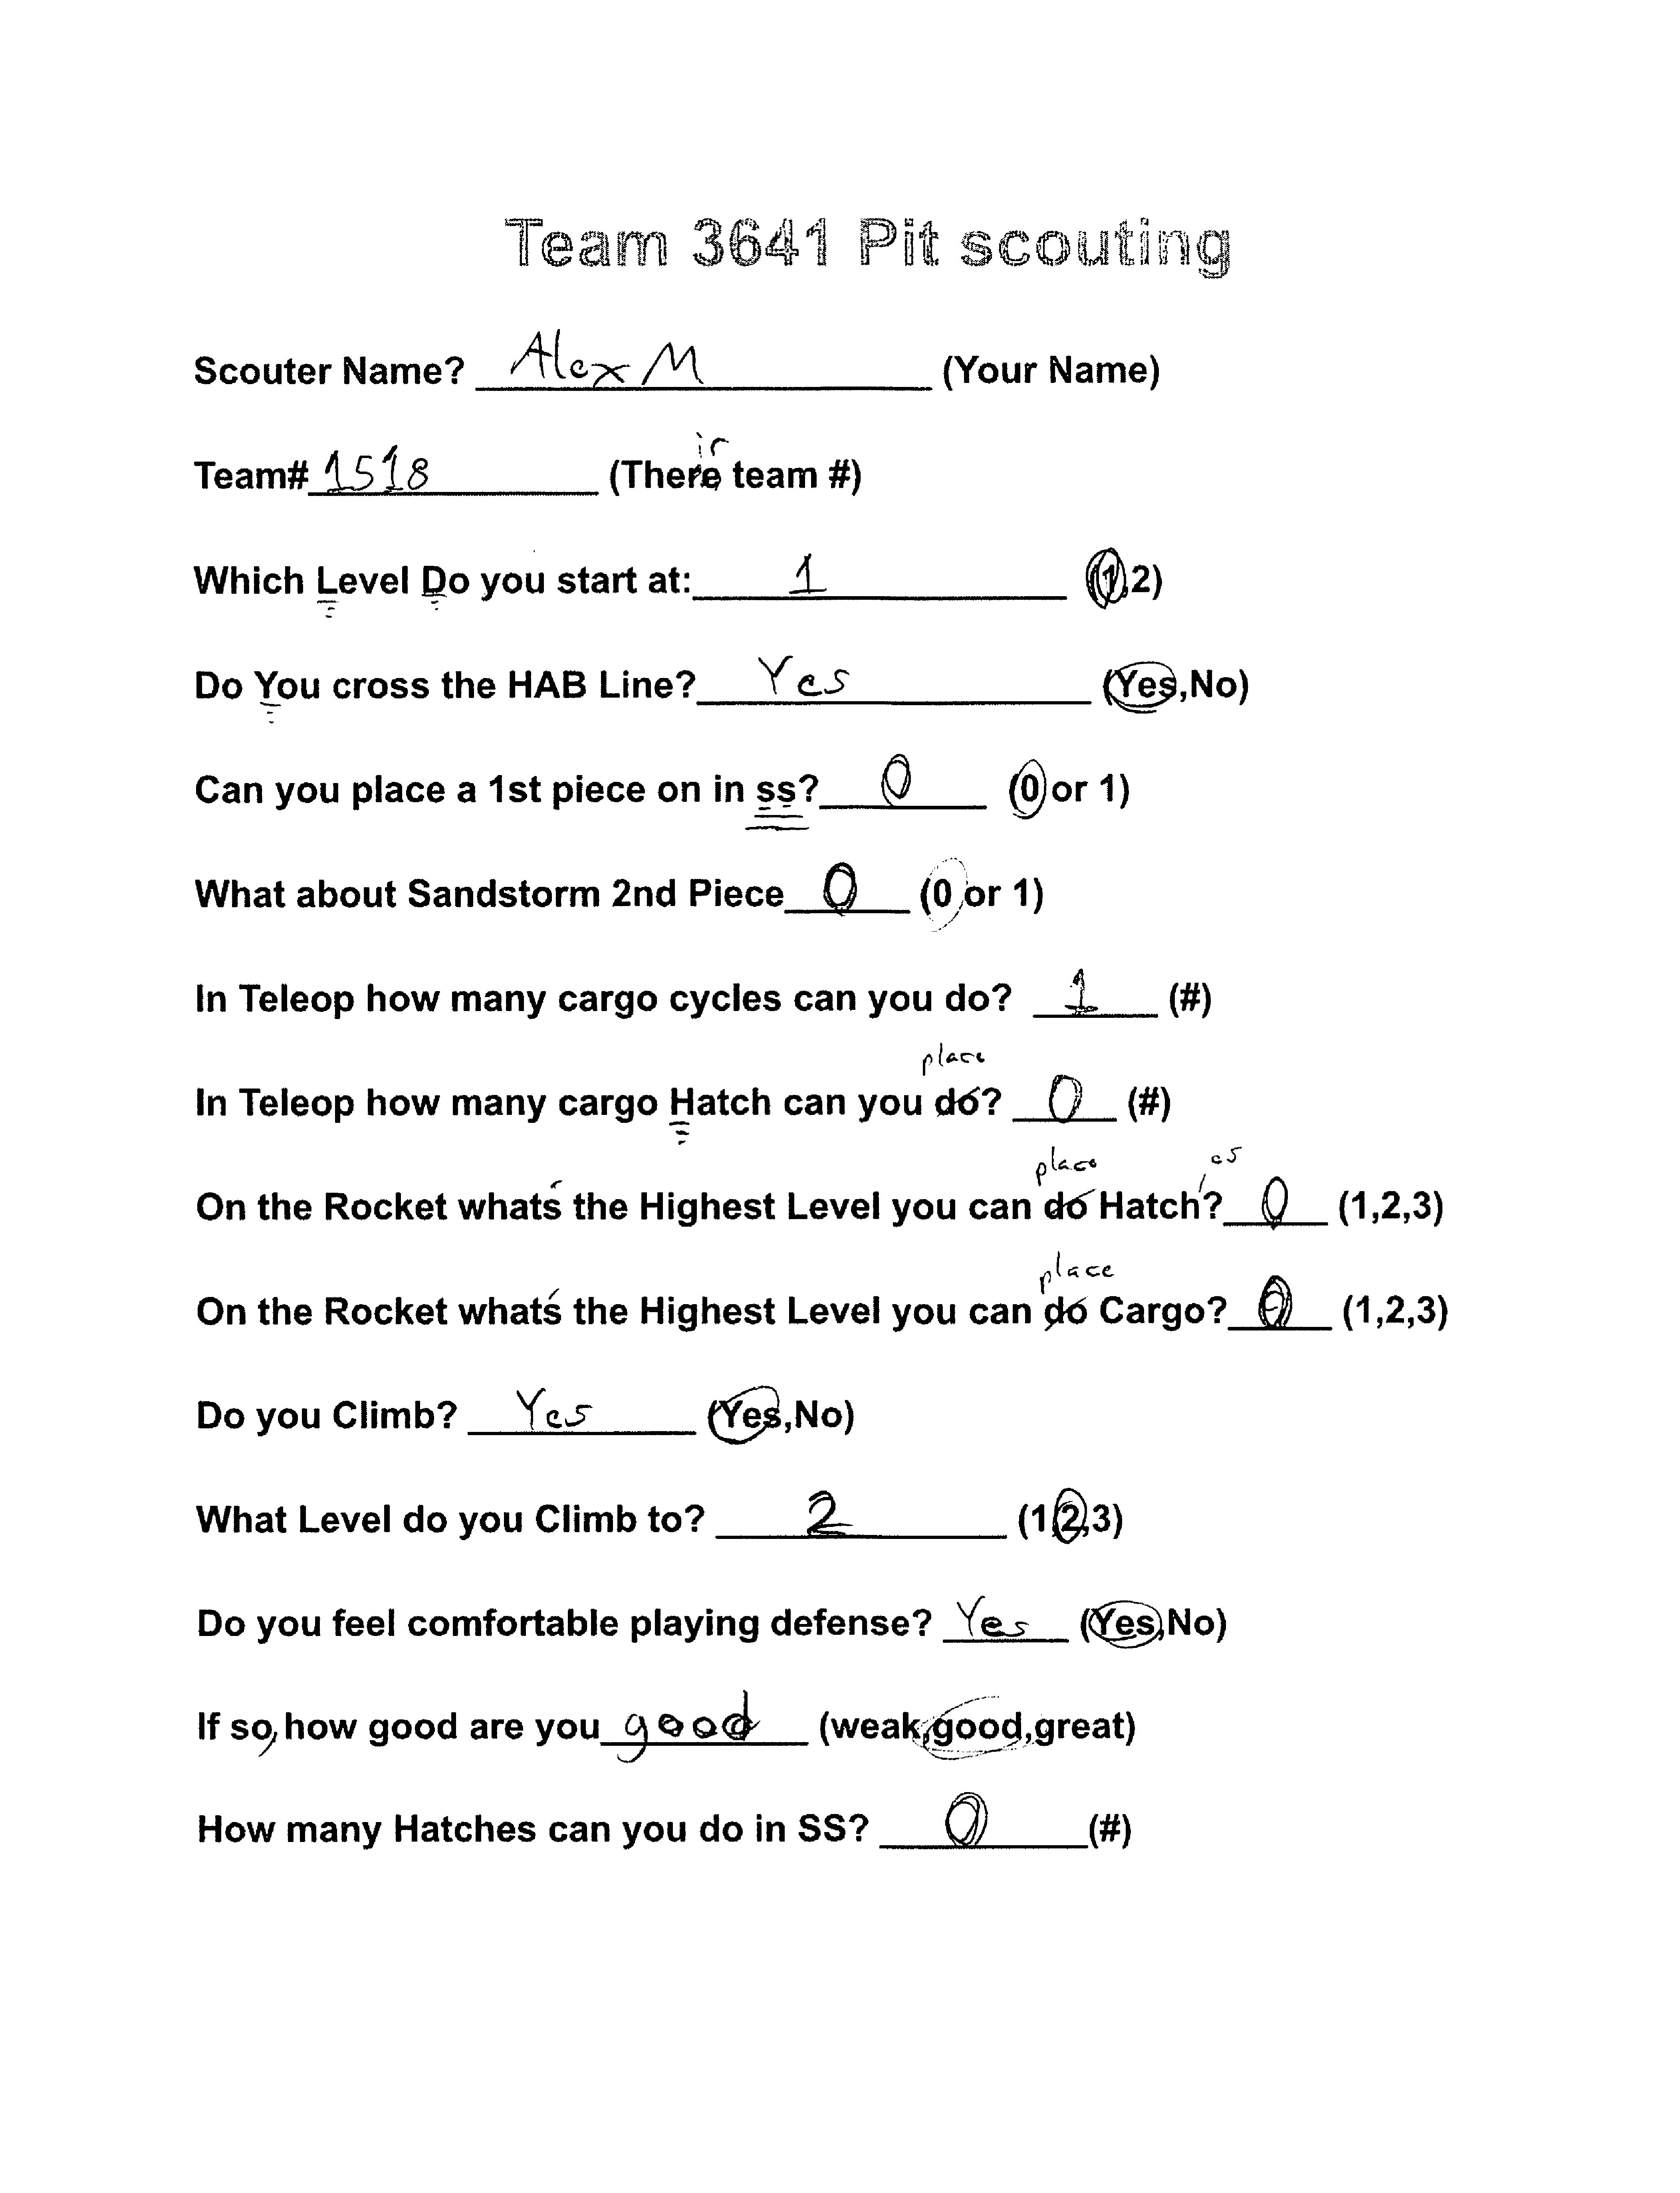 Team 3641 Pit scouting
Scouter Name? Alex M (Your Name)
ir
Team# 1518 (There team #)
Which Level Do you start at: 1 (1,2)
Do You cross the HAB Line? Yes (Yes,No)
Can you place a 1st piece on in ss? 0 (0 or 1)
What about Sandstorm 2nd Piece 0 (0 or 1)
In Teleop how many cargo cycles can you do? 1 (#)
place
In Teleop how many cargo Hatch can you do? 0 (#)
place es
On the Rocket what's the Highest Level you can do Hatch? 0 (1,2,3)
place
On the Rocket what's the Highest Level you can do Cargo? (1,2,3)
Do you Climb? Yes (Yes,No)
What Level do you Climb to? 2 (1,2,3)
Do you feel comfortable playing defense? Yes (Yes,No)
If so, how good are you good (weak,good,great)
How many Hatches can you do in SS? 0 (#)